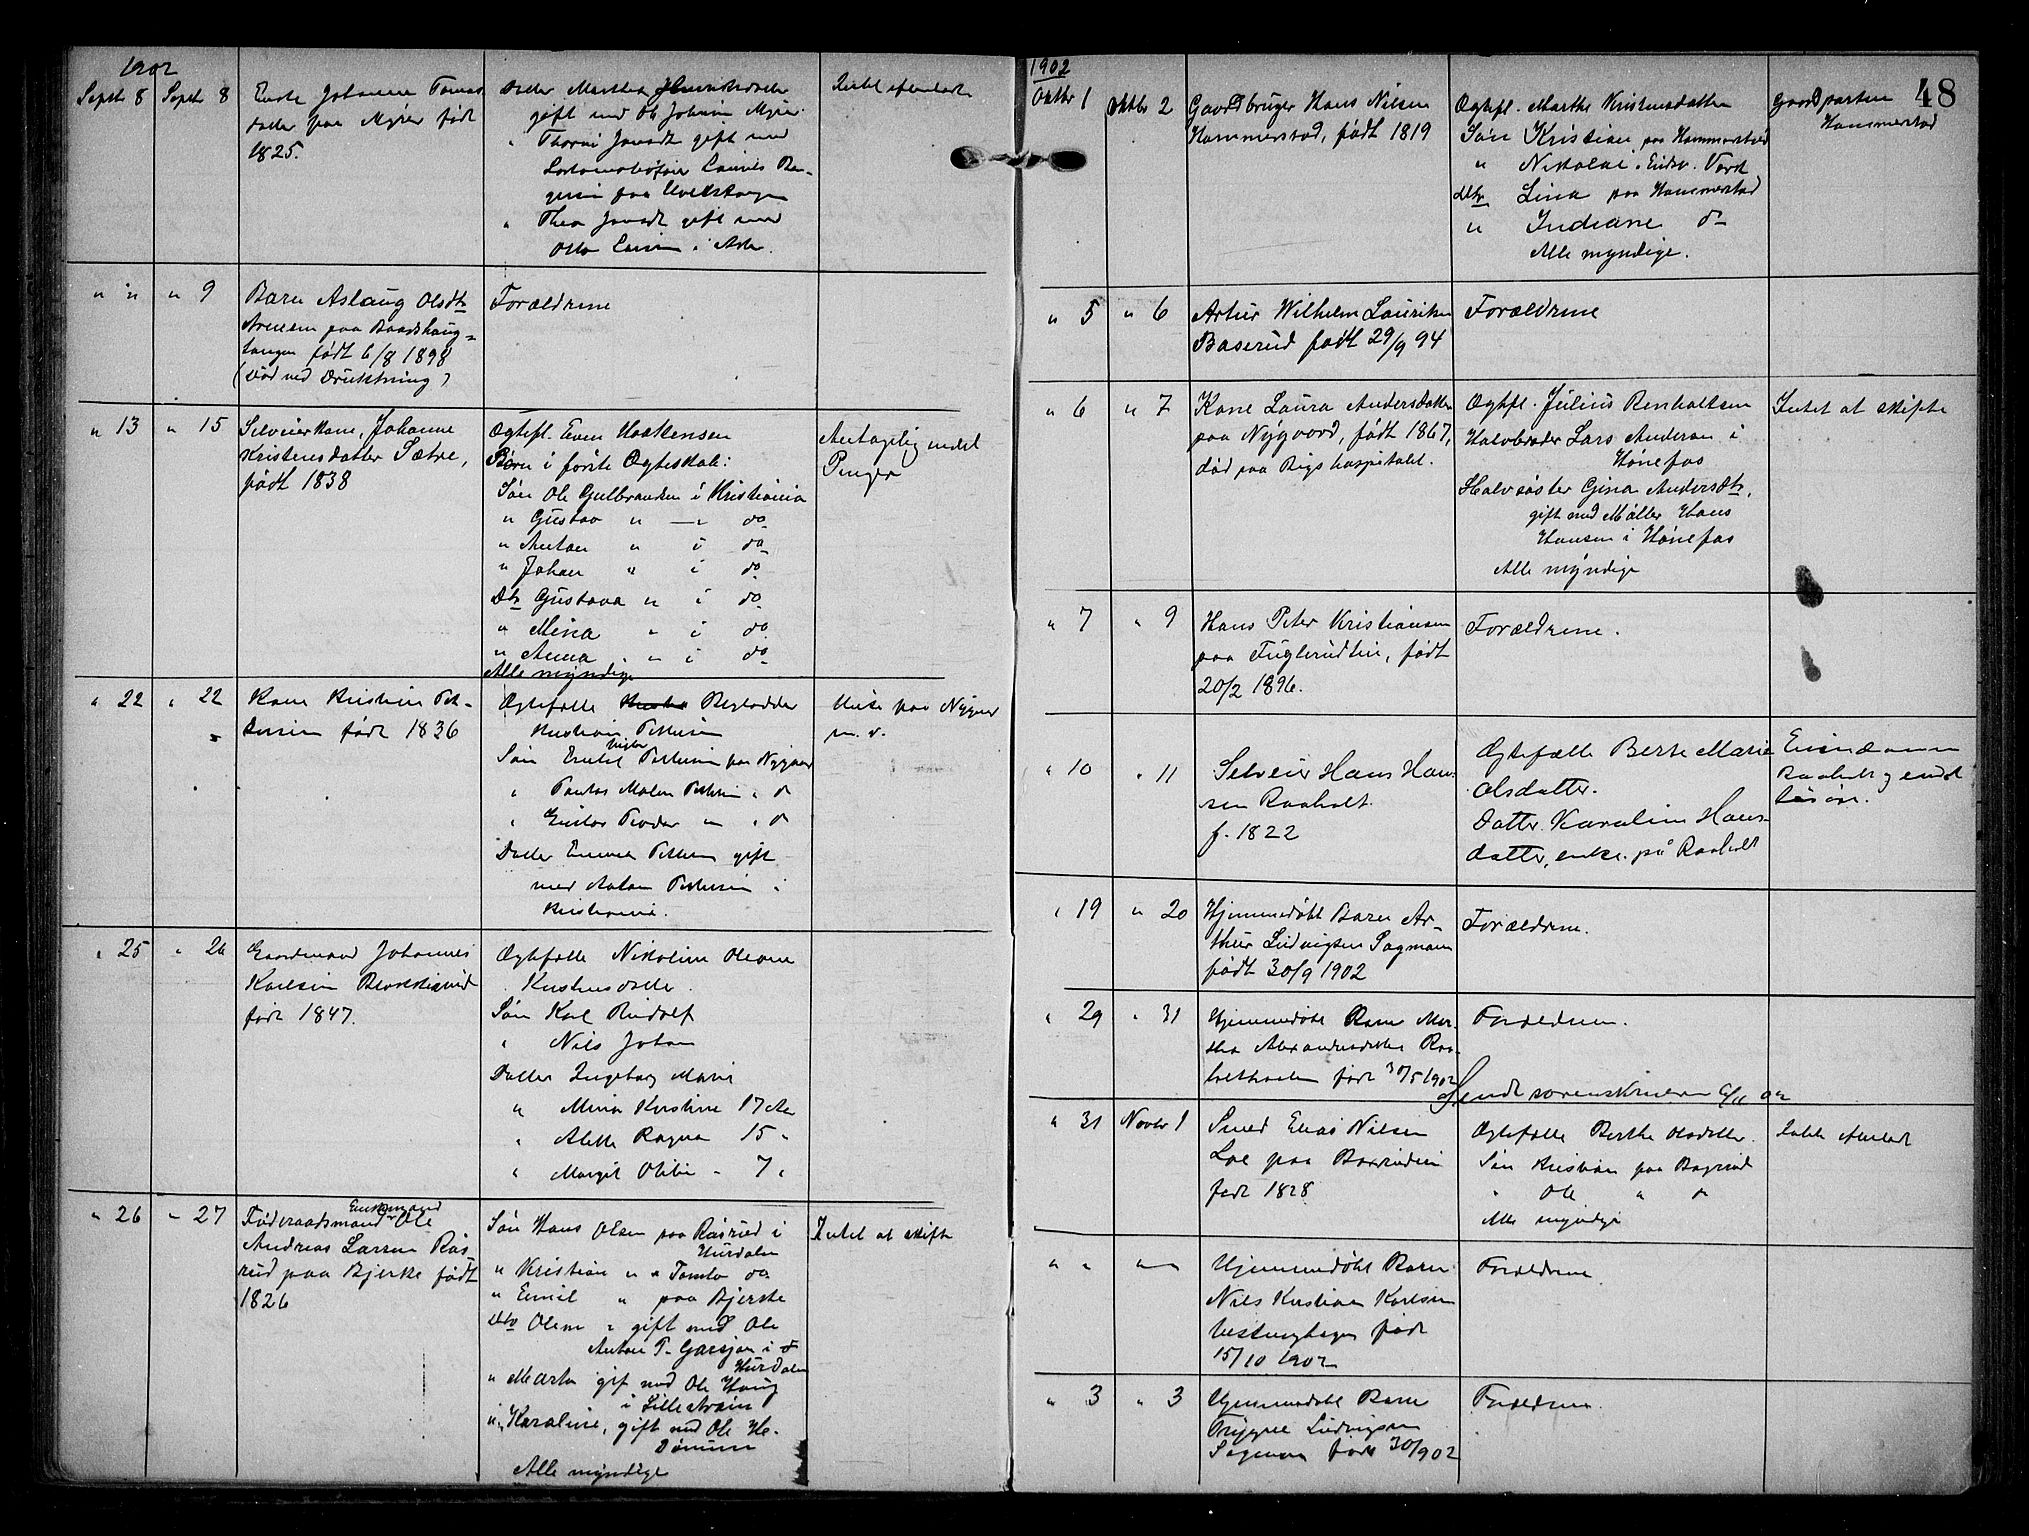 1902
Septb 8 Septb 8 Enke Johanne Tomas
datter paa Myrer født
1825.
Datter Marthea
gift med Ole Johnsen Myrer
" Thorine gift med
Lokomotivfører Laurits
paa
" Thea gift med
Otto Larsen i
Intet efterladt
" " " 9 Barn Aslaug Olsdtr
Arnesen paa Baardshaug-
tangen født 6/8 1898
(død ved Drukning)
Forældrene
" 13 " 15 Selveierkone, Johanne
Kristensdatter Sætre,
født 1838
Ogtefl. Even Haakensen
Børn i første Ogteskab:
Søn Ole Gulbrandsen i Kristiania
" Gustav " — " do
" Anton " i do
" Johan " i do
Dtr Gustava " i do
" Mina " i do
" Anna " i do
Alle myndige
Antagelig endel
Penger
" 22 " 22 Kone Kristine Pet-
tersen født 1836
Ogtefælle
Kristian Pettersen
Søn Emil Pettersen paa Nygaard
" Pettersen " d
" " d
Datter Emma Pettersen gift
med Anton Pettersen i
Kristiania.
Huse paa Nygaard
m. v.
" 25 " 26 Gaardmand Johannes
Karlsen
født 1847.
Ogtefælle Nikoline Oleane
Kristensdatter.
Søn Karl Rudolf
" Nils Johan
Datter Ingeborg Marie
" Mina Kristine 17 Aar
" Alette Ragna 15 "
" Margit Olibie " 7 "
" 26 " 27 Enkemand
Føderaadsmand Ole
Andreas Larsen Rus
rud paa Bjerke født
1826
Søn Hans Olsen paa Rusrud i
Hurdalen
" Kristian " " Tomta do
" Emil " paa Bjerke
Dtr Oline " gift med Ole
Anton P. Garsjøen i d
Hurdalen
" Marta gif med Ole Haug
i Lillestrøm
" Karoline, gift med Ole He-
Dønnum
Alle myndige
Intet at skifte
48
1902
Oktbr 1 Oktbr 2 Gaardbruger Hans Nilsen
Hammerstad, født 1819
Ogtefl. Marthe Kristensdatter
Søn Kristian paa Hammerstad
" Nikolai i Eidsv. Værk
Dtr Lina paa Hammerstad
" Indiane d
Alle myndige.
Gaardparten
Hammerstad
" 5 " 6 Artur Wilhelm Lauritsen
Baserud født 29/9 94
Forældrene
" 6 " 7 Kone Laura Andersdatter
paa Nygaard, født 1867,
død paa Rigshospitalet.
Ogtefl. Julius Renholtsen
Halvbroder Lars Andersen i
Hønefos
Halvsøster Gina Andersdtr,
gift med Møller Hans
Hansen i Hønefos
Alle myndige
Intet at skifte
" 7 " 9 Hans Peter Kristiansen
paa Fuglerudtie, født
20/2 1896.
Forældrene.
" 10 " 11 Selveier Hans Han-
sen Raaholt.
f. 1822
Ogtefælle Berte Marie
Olsdatter.
Datter Karoline Hans-
datter, enke på Raaholt
Eiendommen
Raaholt og endel
Løsøre.
" 19 " 20 Hjemmedøbt Barn Ar-
thur Ludvigsen Sagmoen
født 30/9 1902
Forældrene.
" 29 " 31 Hjemmedøbt Barn Mar-
tha
født 30/5 1902
Forældrene.
Sendt sorenskriveren 6/11 02
" 31 Novbr 1 Smed Elias Nilsen
Loe paa
født 1828
Ogtefælle Berthe Olsdatter.
Søn Kristian paa
" Ole " d
Alle myndige
" " " " Hjemmedøbt Barn
Nils Kristian Karlsen
født
15/10 1902
Forældrene.
" 3 " 3 Hjemmedøbt Barn
Trygve Ludvigsen
Sagmoen født 30/9 02
Forældrene.